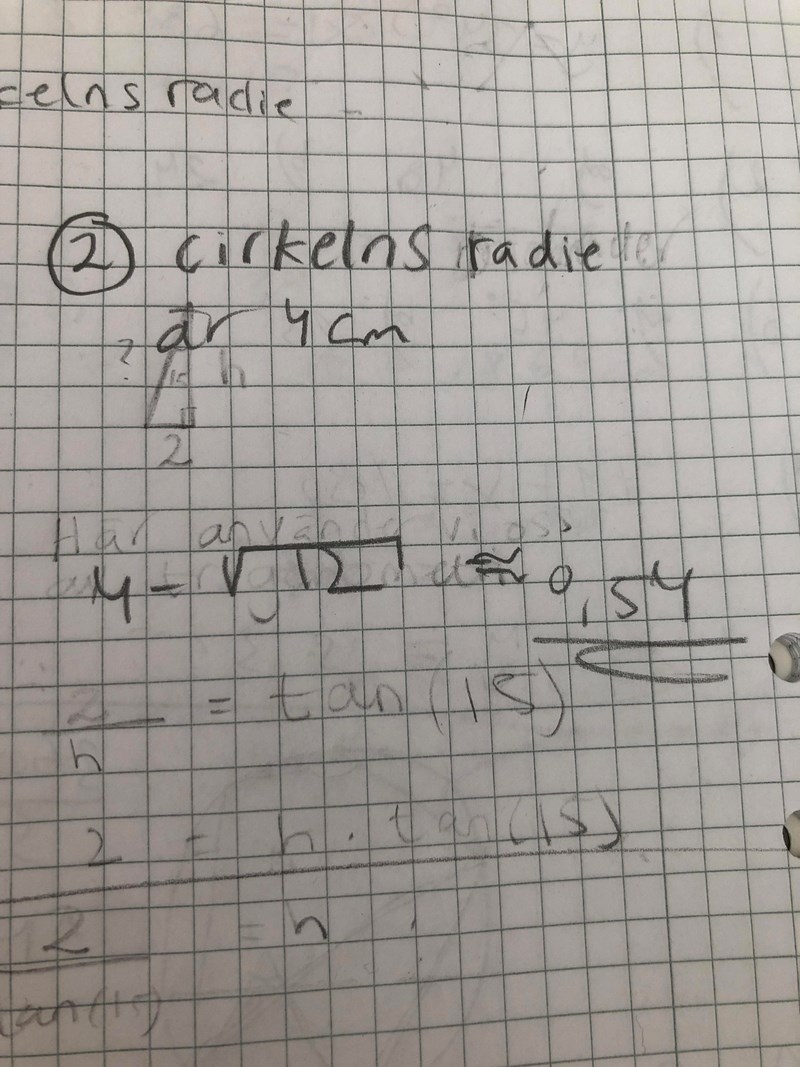 celns radie
② cirkelns radie
är 4 cm
? 15 h
2
Här använder vi oss
4 - √12 ≈ 0,54
2/h = tan(15)
2 = h · tan(15)
2/tan(15) = h